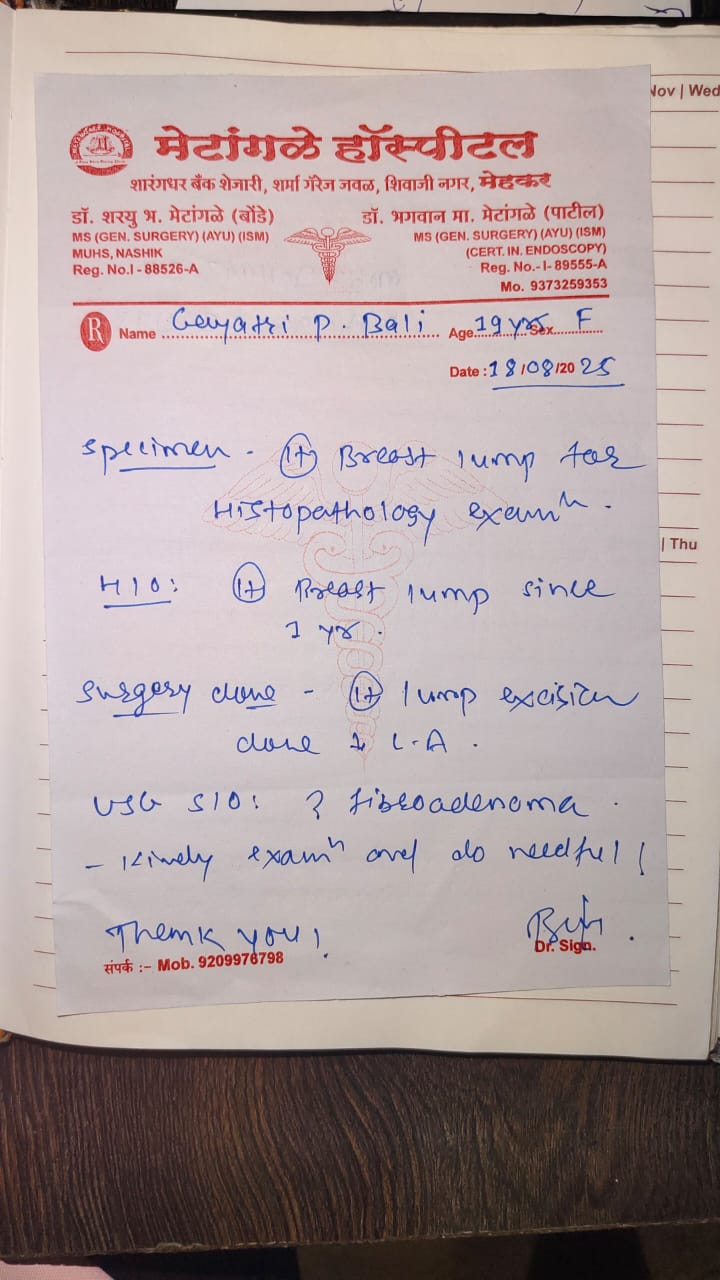 Nov | Wed
मेटांगळे हॉस्पीटल
शारंगधर बँक शेजारी, शर्मा गॅरेज जवळ, शिवाजी नगर, मेहकर
डॉ. शरयु भ. मेटांगळे (बोंडे)
MS (GEN. SURGERY) (AYU) (ISM)
MUHS, NASHIK
Reg. No.I - 88526-A
डॉ. भगवान मा. मेटांगळे (पाटील)
MS (GEN. SURGERY) (AYU) (ISM)
(CERT. IN. ENDOSCOPY)
Reg. No.- I- 89555-A
Mo. 9373259353
R Name Gayatri P. Bali Age 19 yrs Sex F
Date : 18/08/2025
specimen - (Lt) Breast lump for
Histopathology examⁿ.
| Thu
H/O: (Lt) Breast lump since
1 yr.
surgery done - (Lt) lump excision
done L.A.
USG S/O: ? fibroadenoma.
- Kindly examⁿ and do needful!
Thank you!
Dr. Sign.
संपर्क :- Mob. 9209976798